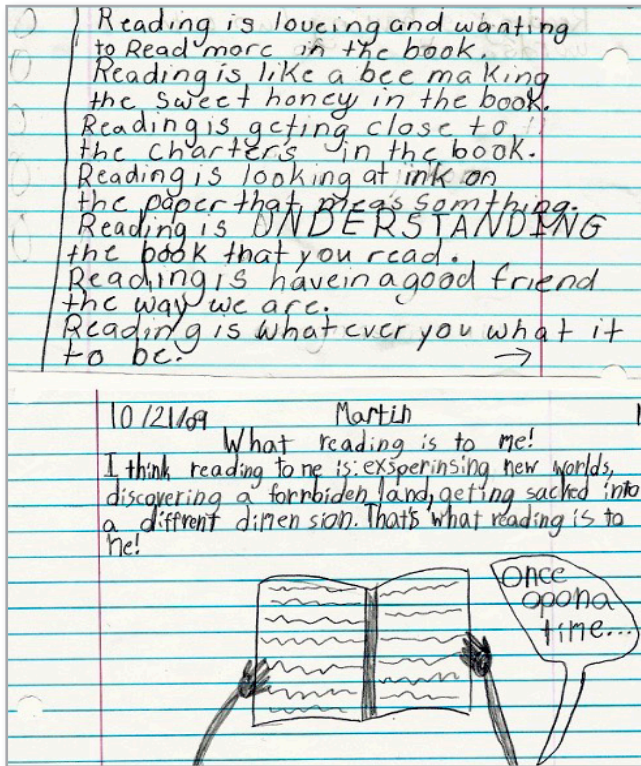 Reading is loveing and wanting
to Read more in the book.
Reading is like a bee making
the sweet honey in the book.
Reading is geting close to
the charters in the book.
Reading is looking at ink on
the paper that meas somthing.
Reading is UNDERSTANDING
the book that you read.
Reading is havein a good friend
the way we are.
Reading is what ever you what it
to be. →
10/21/09 Martin
What reading is to me!
I think reading to me is: exsperinsing new worlds,
discovering a forrbiden land, geting sacked into
a diffrent dimension. That's what reading is to
me!
Once
opona
time...